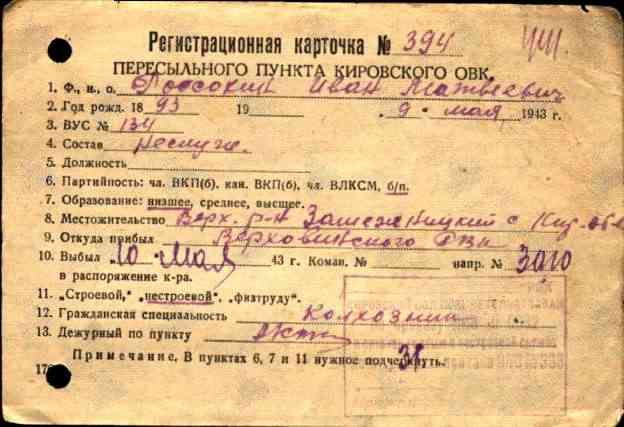 Регистрационная карточка № 394
ПЕРЕСЫЛЬНОГО ПУНКТА КИРОВСКОГО ОВК.
1. Ф., и., о. Иван Матвеевич
2. Год рожд. 18 93 19 9. мая 1943 г.
3. ВУС № 134
4. Состав неслуж.
5. Должность
6. Партийность: чл. ВКП(б), кан. ВКП(б), чл. ВЛКСМ, б/п.
7. Образование: низшее, среднее, высшее.
8. Местожительство Верх. р-н с
9. Откуда прибыл Верховинского РВК
10. Выбыл 10 мая 43 г. Коман. № напр. №
в распоряжение к-ра.
11. „Строевой,“ „нестроевой“, „физтруду“.
12. Гражданская специальность Колхозник
13. Дежурный по пункту
Примечание. В пунктах 6, 7 и 11 нужное подчеркнуть.